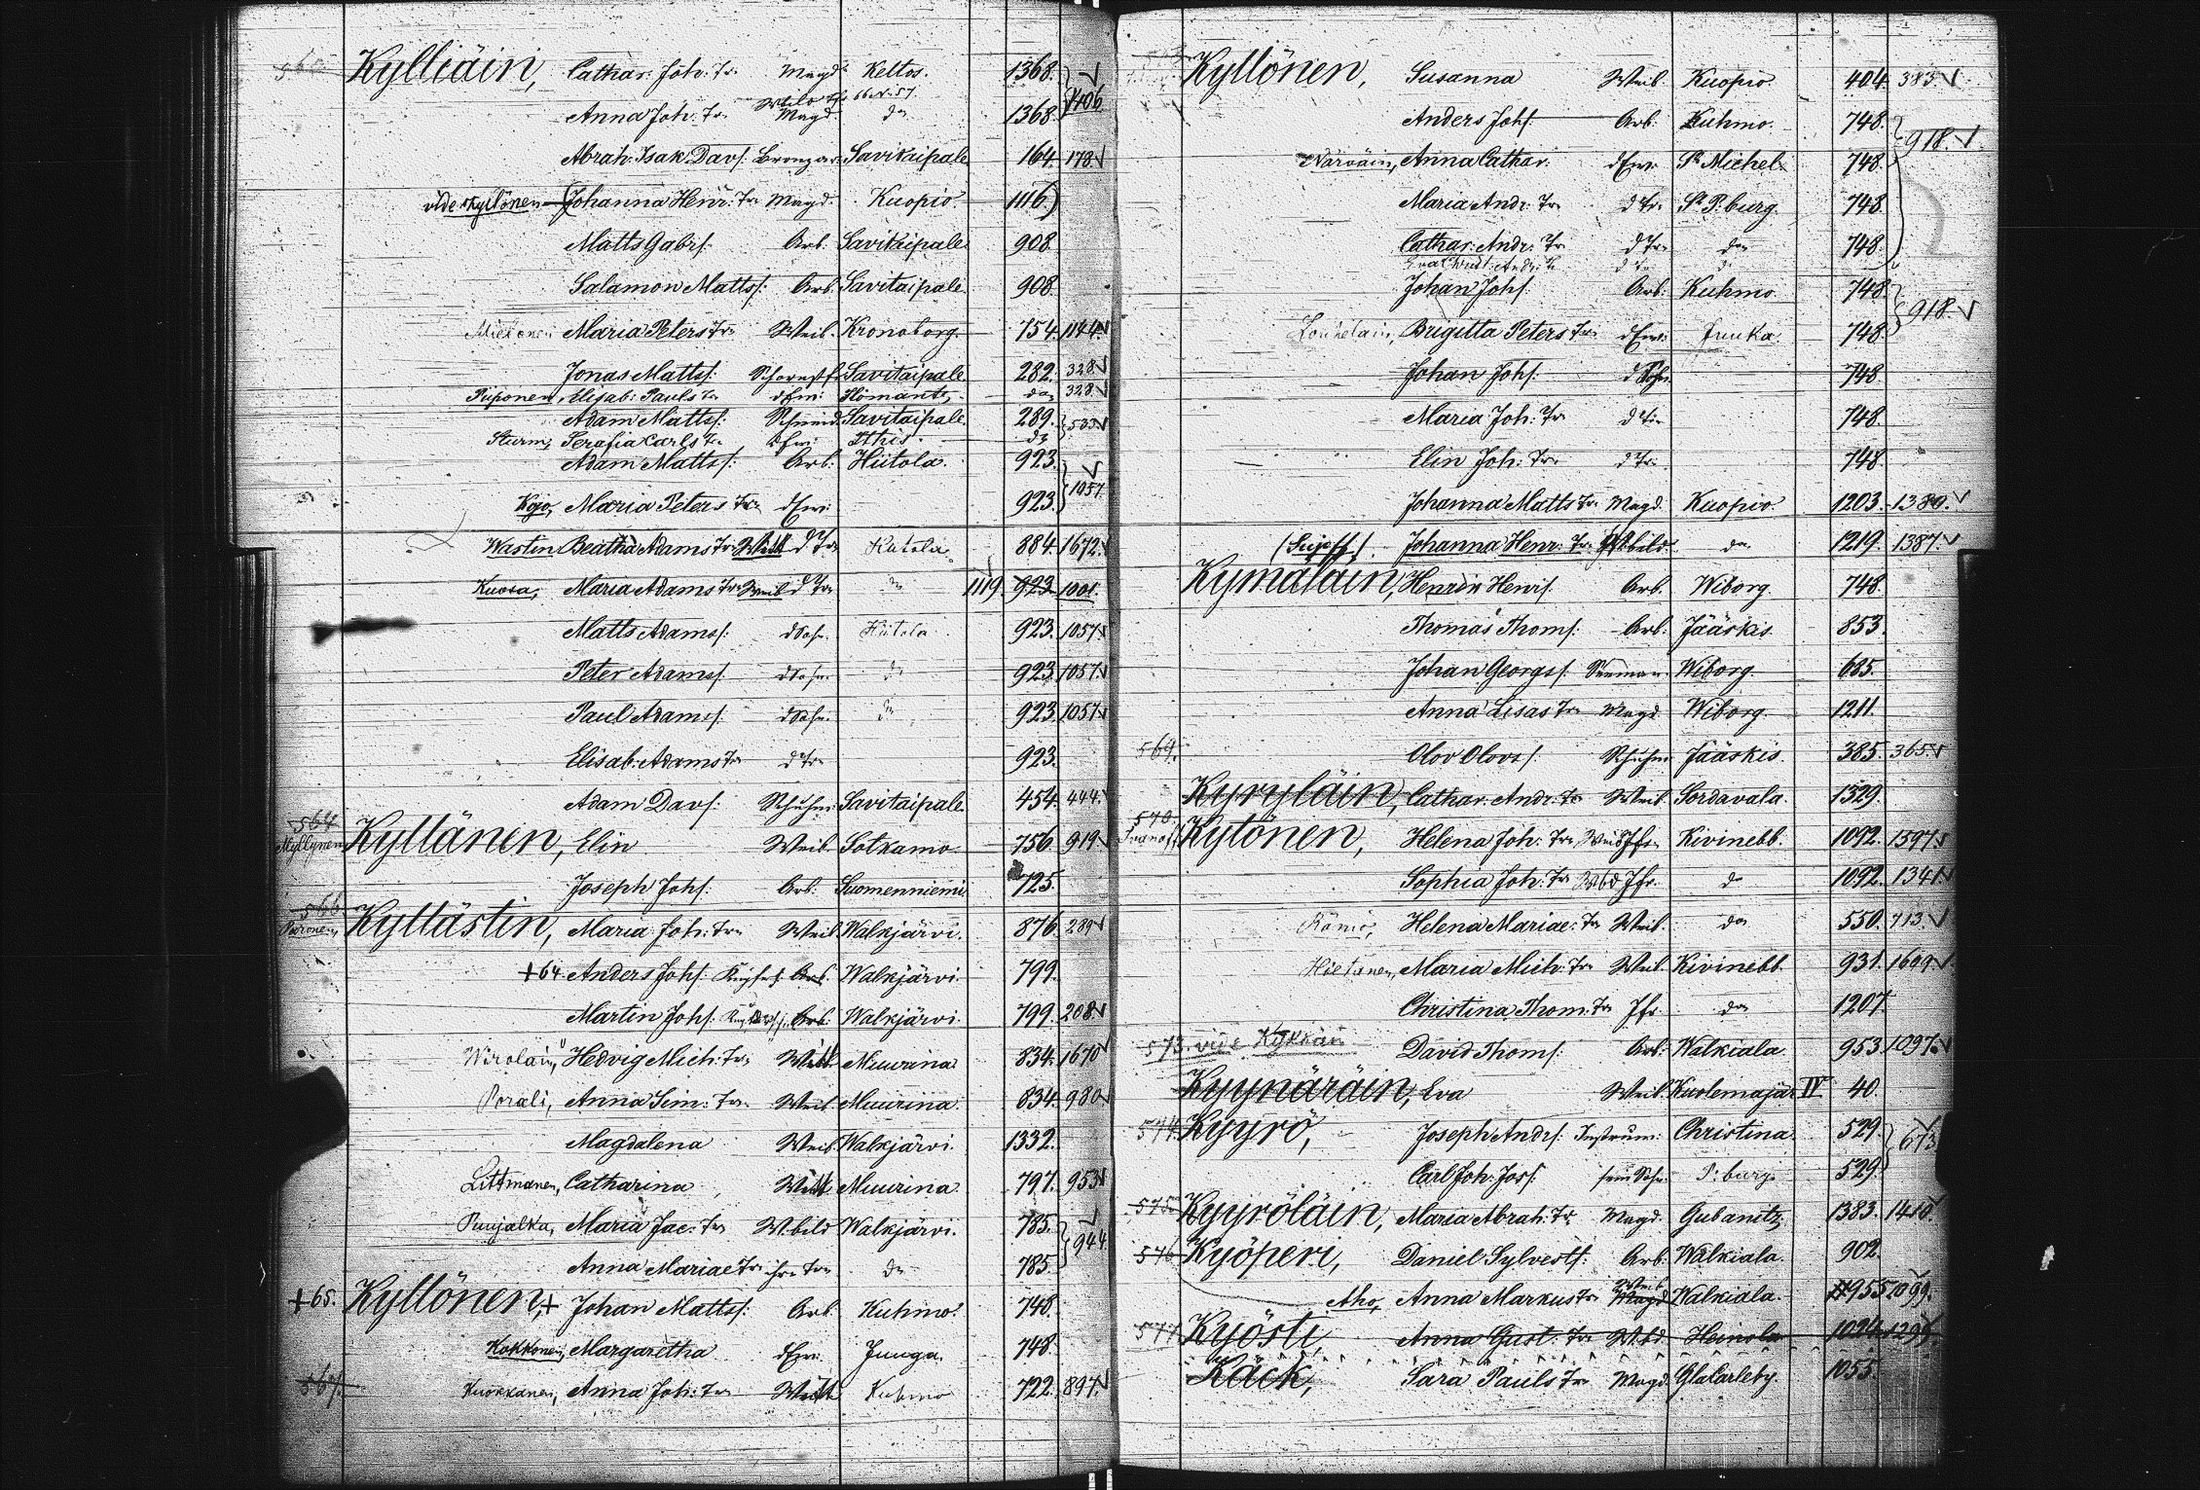 Kylliäin, Cathar. Joh. Tr. Magd. Keltos. 1368.
Anna Joh. Tr. Magd. do 1368. 1406
Abrah. Isak Davs. Bronzar. Savitaipale 164. 178
vide Kyllönen (Johanna Henr. Tr. Magd. Kuopio. 1116)
Matts Gabrs. Arb. Savitaipale 908.
Salamon Mattss. Arb. Savitaipale 908.
Maria Peters Tr. Weib. Kronoborg. 754. 1144
Jonas Mattss. Savitaipale 282. 328
Piiponen, Elisab. Pauls Tr. d Ew. Ilomants do 328
Adam Mattss. Schneid. Savitaipale 289.
Sturm, Serafia Carls Tr. d Ew. Itthis. do
Adam Mattss. Arb. Hiitola. 923.
Kojo, Maria Peters Tr. d Ew. 923. 1057
Wastin Beatha Adams Tr. d Tr. Hiitola 884. 1672
Kuosa, Maria Adams Tr. Weib d Tr. do 1119. 923. 1001.
Matts Adamss. d Sohn. Hiitola 923. 1057
Peter Adamss. d Sohn. do 923. 1057
Paul Adamss. d Sohn. do 923. 1057
Elisab. Adams Tr. d Tr. 923.
Adam Davs. Schuhm. Savitaipale 454. 444.
564
Myllynen Kyllänen, Elin Weib. Sotkamo 756. 919
Joseph Johs. Arb. Suomenniemi 725.
566
Kyllästin, Maria Joh. Tr. Weib. Walkjärvi. 876. 289
+64. Anders Johs. Arb. Walkjärvi 799.
Martin Johs. Arb. Walkjärvi 799. 208
Wirolain, Hedvig Mich. Tr. Muurina 834. 1670
Porali, Anna Sim. Tr. Weib Muurina. 834. 980
Magdalena Weib. Walkjärvi. 1332.
Littmanen, Catharina Muurina. 797. 953
Puujalka, Maria Jac. Tr. W.bild Walkjärvi. 785.
Anna Mariae Tr. ihre Tr. do 785. 944
+65. Kyllönen, + Johan Mattss. Arb. Kuhmo. 748.
Kokkonen, Margaretha d Ew. Juuga. 748.
567. Kuokkanen, Anna Joh. Tr. Kuhmo 722. 897
Kyllönen, Susanna Weib. Kuopio 404. 383
Anders Johs. Arb. Kuhmo. 748.
Närväin, Anna Cathar. d Ew. St. Michel. 748. 918.
Maria Andr. Tr. d Tr. St. P.burg. 748.
Cathar. Andr. Tr. d Tr. do 748.
Eva Christ. Andr. Tr. d Tr. do
Johan Johs. Arb. Kuhmo 748.
Brigitta Peters Tr. d Ew. Juuka. 748. 918
Johan Johs. d Sohn 748.
Maria Joh. Tr. d Tr. 748.
Elin Joh. Tr. d Tr. 748.
Johanna Matts Tr. Magd. Kuopio. 1203. 1380.
Johanna Henr. Tr. W.bild. do 1219. 1387.
Kymäläin, Henrik Henrs. Arb. Wiborg. 748.
Thomas Thoms. Arb. Jääskis 853.
Johan Georgss. Seeman. Wiborg. 685.
Anna Lisas Tr. Magd. Wiborg. 1211.
569. Olov Olovs. Schuhm. Jääskis. 385. 365
Kyryläin, Cathar. Andr. Tr. Weib. Sordavala. 1529.
570. Kytönen, Helena Joh. Tr. Kivinebb. 1092. 1397
Sophia Joh. Tr. Wbd Jfr. do 1092. 1341
Rämö, Helena Mariae Tr. Weib. do 550. 713.
Hietanen, Maria Mich. Tr. Weib. Kivinebb. 931. 1609
Christina Thom. Tr. Jfr. do 1207.
573. vide Kykkäin David Thoms. Arb. Walkiala 953 1097.
Kyynäräin, Eva Weib. Kuolemajär. IV 40.
574. Kyyrö, Joseph Andrs. Instrum. Christina. 529. 673
Carl Joh. Joss. sein Sohn. P.burg. 529.
575. Kyyröläin, Maria Abrah. Tr. Magd. Gubanitz. 1383. 1410.
576. Kyöperi, Daniel Sylvests. Arb. Walkiala. 902.
Aho, Anna Markus Tr. Weib Magd Walkiala. 955 1099.
577. Kyösti, Anna Gust. Tr. W.bd. Heinola 1094.
Käck, Sara Pauls Tr. Magd. Glalarleby. 1055.